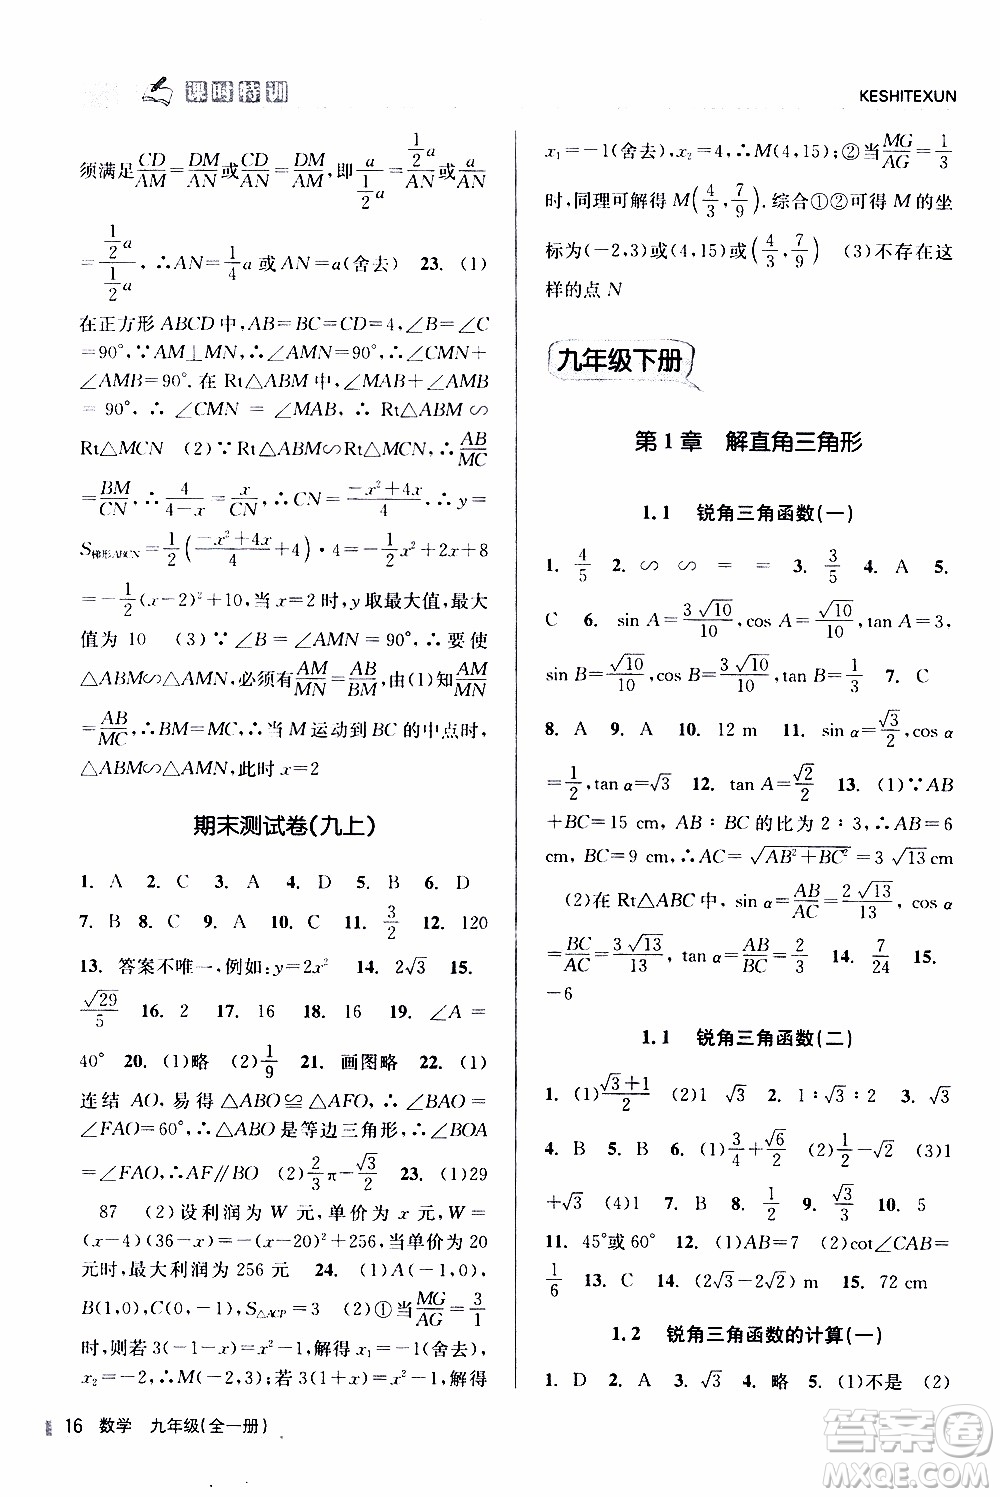 课时特训
KESHITEXUN
须满足CD/AM=DM/AN或CD/AN=DM/AM,即a/(1/2 a)=(1/2 a)/AN或a/AN
=(1/2 a)/(1/2 a),∴AN=1/4 a或AN=a(舍去) 23. (1)
在正方形ABCD中,AB=BC=CD=4,∠B=∠C
=90°,∵AM⊥MN,∴∠AMN=90°,∴∠CMN+
∠AMB=90°.在Rt△ABM中,∠MAB+∠AMB
=90°,∴∠CMN=∠MAB,∴Rt△ABM∽
Rt△MCN (2)∵Rt△ABM∽Rt△MCN,∴AB/MC
=BM/CN,∴4/(4-x)=x/CN,∴CN=(-x²+4x)/4,∴y=
S梯形ABCN=1/2((-x²+4x)/4+4)·4=-1/2x²+2x+8
=-1/2(x-2)²+10,当x=2时,y取最大值,最大
值为10 (3)∵∠B=∠AMN=90°,∴要使
△ABM∽△AMN,必须有AM/MN=AB/BM,由(1)知AM/MN
=AB/MC,∴BM=MC,∴当M运动到BC的中点时,
△ABM∽△AMN,此时x=2
期末测试卷(九上)
1. A 2. C 3. A 4. D 5. B 6. D
7. B 8. C 9. A 10. C 11. 3/2 12. 120
13. 答案不唯一,例如:y=2x² 14. 2√3 15.
√29/5 16. 2 17. 16 18. 16 19. ∠A=
40° 20. (1)略 (2)1/9 21. 画图略 22. (1)
连结AO,易得△ABO≌△AFO,∴∠BAO=
∠FAO=60°,∴△ABO是等边三角形,∴∠BOA
=∠FAO,∴AF∥BO (2)2/3π-√3/2 23. (1)29
87 (2)设利润为W元,单价为x元,W=
(x-4)(36-x)=-(x-20)²+256,当单价为20
元时,最大利润为256元 24. (1)A(-1,0),
B(1,0),C(0,-1),S△ACP=3 (2)①当MG/AG=3/1
时,则有3(-1-x)=x²-1,解得x₁=-1(舍去),
x₂=-2,∴M(-2,3);若3(x+1)=x²-1,解得
x₁=-1(舍去),x₂=4,∴M(4,15);②当MG/AG=1/3
时,同理可解得M(4/3,7/9).综合①②可得M的坐
标为(-2,3)或(4,15)或(4/3,7/9) (3)不存在这
样的点N
九年级下册
第1章 解直角三角形
1.1 锐角三角函数(一)
1. 4/5 2. ∽ ∽ = = 3. 3/5 4. A 5.
C 6. sin A=3√10/10,cos A=√10/10,tan A=3,
sin B=√10/10,cos B=3√10/10,tan B=1/3 7. C
8. A 9. A 10. 12 m 11. sin α=√3/2,cos α
=1/2,tan α=√3 12. tan A=√2/2 13. (1)∵AB
+BC=15 cm,AB∶BC的比为2∶3,∴AB=6
cm,BC=9 cm,∴AC=√(AB²+BC²)=3√13 cm
(2)在Rt△ABC中,sin α=AB/AC=2√13/13,cos α
=BC/AC=3√13/13,tan α=AB/BC=2/3 14. 7/24 15.
-6
1.1 锐角三角函数(二)
1. (1)(√3+1)/2 (2)√3 2. 1∶√3∶2 3. √3
4. B 5. B 6. (1)3/4+√6/4 (2)1/2 (3)1
+√3 (4)1 7. B 8. 1/2 9. √3/3 10. 5
11. 45°或60° 12. (1)AB=7 (2)cot∠CAB=
1/6 13. C 14. (2√3-2√2) m 15. 72 cm
1.2 锐角三角函数的计算(一)
1. D 2. A 3. √3 4. > 5. (1)不是 (2)
16 数学 九年级(全一册)
答案圈
MXQE.COM